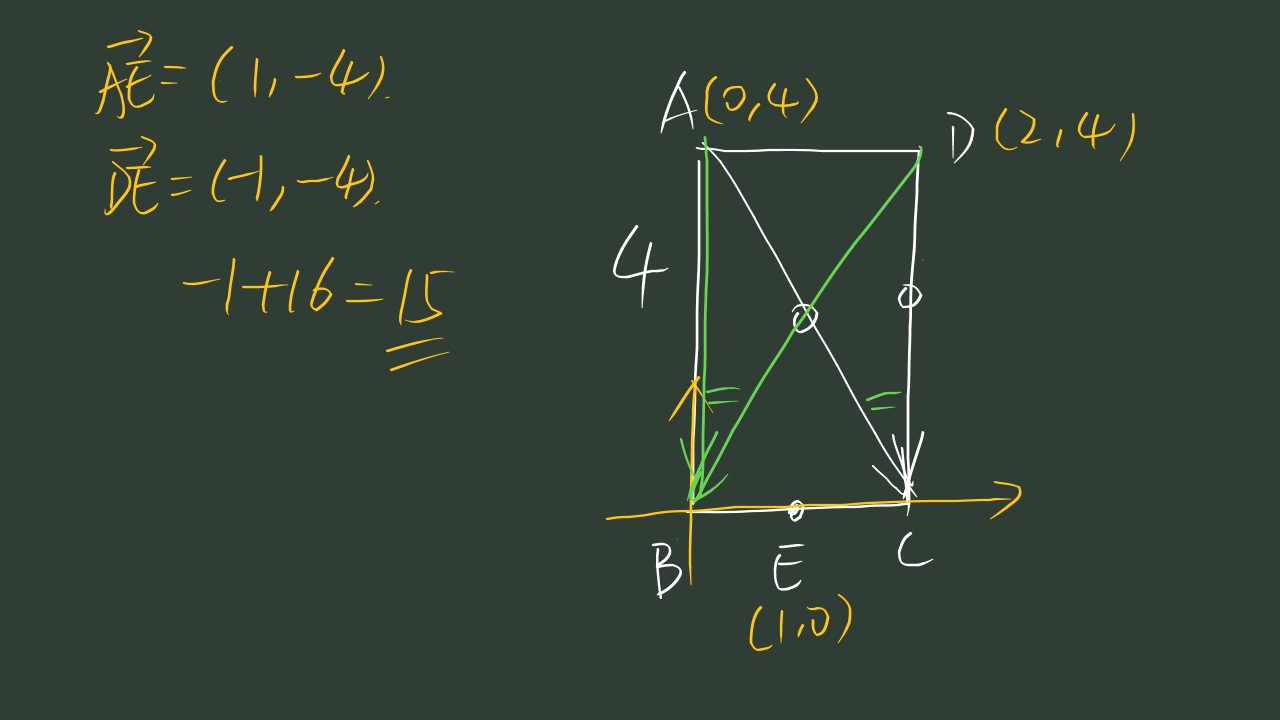 AE = (1, -4).
DE = (-1, -4).
-1+16=15
A(0,4)
D (2,4)
4
B
E
C
(1,0)